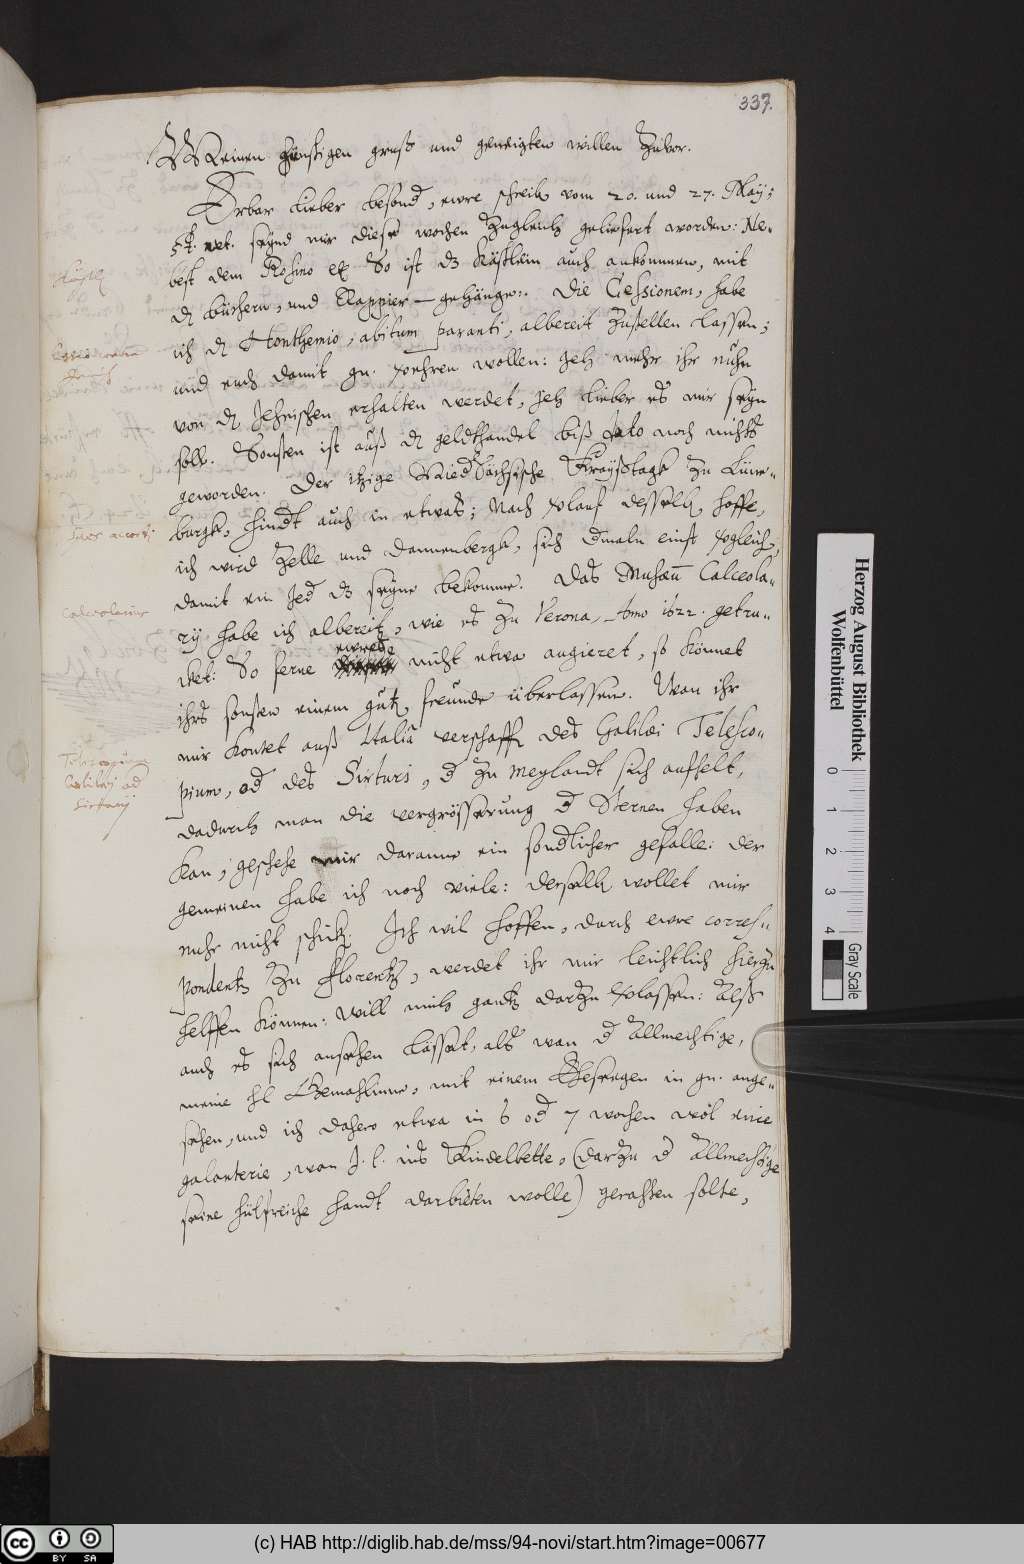 337.
Meinen günstigen gruß und geneigten willen zuvor.
Erbar lieber besonder, ewre schreiben vom 20. und 27. May;
st. vet. seynd mir diese wochen zugleich geliefert worden: Ne-
best dem Rosino etc. So ist dz Kästlein auch ankommen, mit
den büchern, und Rappier-gehänge. Die Cessionem, habe
ich dem Honthemio, abitum paranti, albereit zustellen lassen;
und euch damit gn. wollen: Jeh mehr ihr nuhn
von den erhalten werdet, jeh lieber es mir seyn
soll. Sonsten ist auß dem geldthandel biß dato noch nichts
geworden. Der itzige NiederSächsische Kraysstagk zu Lüne-
burgk, hindert auch in etwas; Nach verlauf desselben, hoffe,
ich wird Zelle und Dannenbergk, sich dermaln einst vergleichen,
damit ein Jeder dz seyne bekomme. Das Musaeum Calceola-
rij habe ich albereitz, wie es zu Verona, Anno 1622. getru-
cket: So ferne ewres nicht etwa augieret, so könnet
ihrs sonsten einem guten freunde überlassen. Wan ihr
mir kontet auß Italia verschaffen des Galilaei Telesco-
pium, oder des Sirturi, der zu Meylandt sich aufhelt,
dadurch man die vergrösserung der Sternen haben
kan, geschehe mir daranne ein sonderlicher gefalle: der
gemeinen habe ich noch viele: derselben wollet mir
nuhr nicht schicken. Ich wil hoffen, durch ewre corres-
pondentz zu Florentz, werdet ihr mir leichtlich hierzu
helffen können: will mich gantz darzu verlassen: Alß
auch es sich ansehen lässet, als wan der Allmechtige,
meine hl Gemahlinne, mit einem Ehesegen in gn. ange-
sehen, und ich dahero etwa in 6 oder 7 wochen wol eine
galanterie, wan J. l. ins Kindelbette, (darzu der Allmechtige
seine hülfreiche handt darbieten wolle) gerahten solte,
Calceolarius
Telescopium
Galilaei od
Sirturij
Herzog August Bibliothek
Wolfenbüttel
0 1 2 3 4
Gray Scale
cc BY SA
(c) HAB http://diglib.hab.de/mss/94-novi/start.htm?image=00677